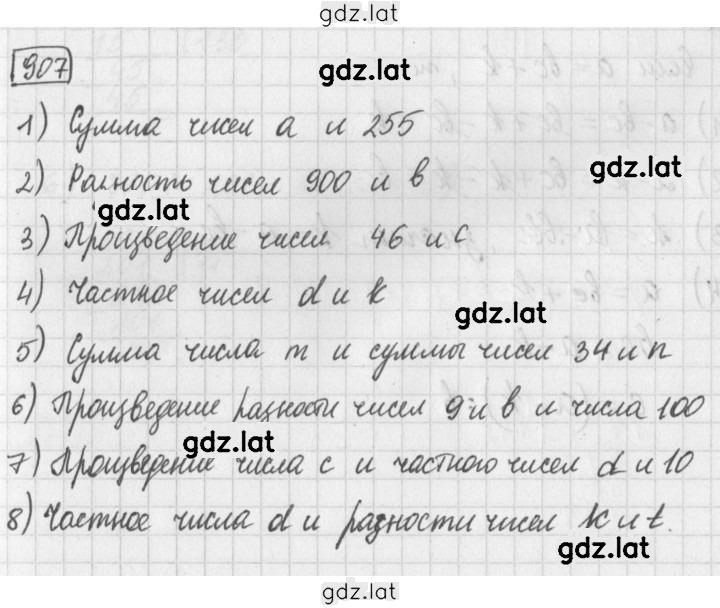 gdz.lat
907
gdz.lat
1) Сумма чисел a и 255
2) Разность чисел 900 и b
gdz.lat
gdz.lat
3) Произведение чисел 46 и c
4) Частное чисел d и k
gdz.lat
5) Сумма числа m и суммы чисел 34 и n
6) Произведение разности чисел 9 и b и числа 100
gdz.lat
7) Произведение числа c и частного чисел d и 10
8) Частное числа d и разности чисел k и t.
gdz.lat
gdz.lat